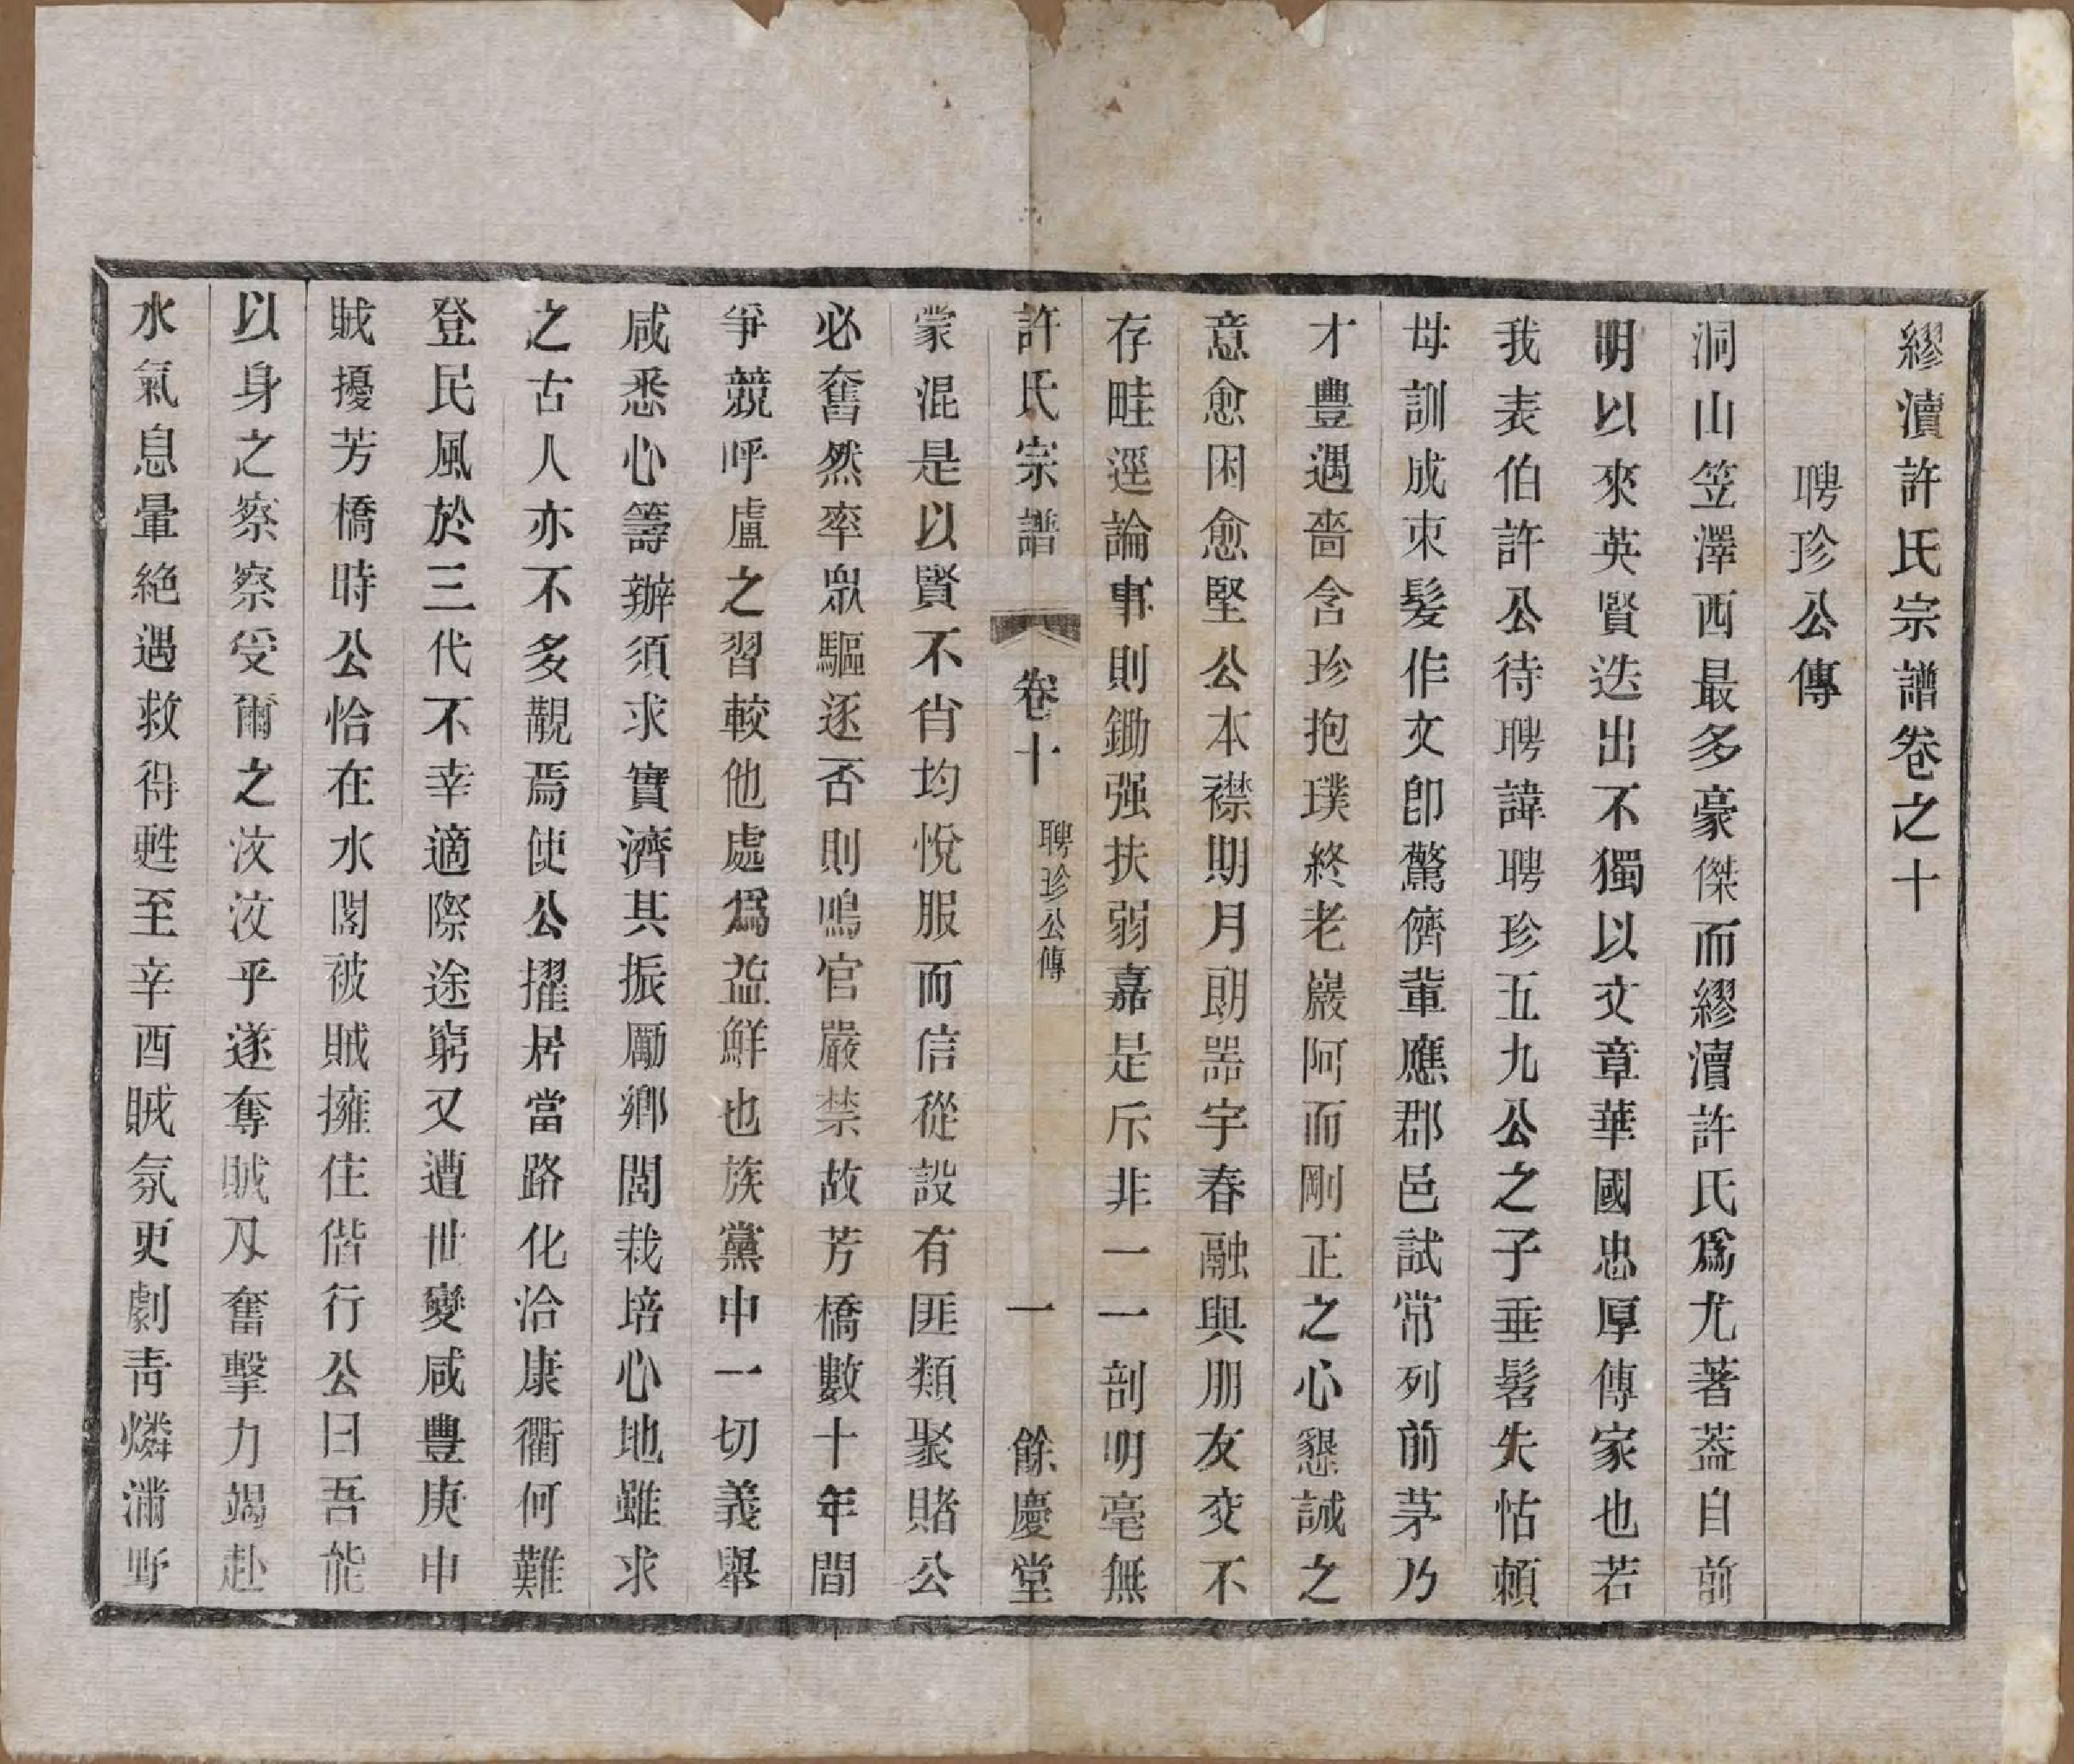 繆瀆許氏宗譜卷之十
聘珍公傳
洞山笠澤西最多豪傑而繆瀆許氏爲尤著蓋自前
明以來英賢迭出不獨以文章華國忠厚傳家也若
我表伯許公待聘諱聘珍五九公之子垂髫失怙賴
母訓成束髮作文卽驚儕輩應郡邑試常列前茅乃
才豐遇嗇含珍抱璞終老巖阿而剛正之心懇誠之
意愈困愈堅公本襟期月朗器宇春融與朋友交不
存畦逕論事則鋤强扶弱嘉是斥非一一剖明毫無
許氏宗譜 卷十 聘珍公傳 一 餘慶堂
蒙混是以賢不肖均悅服而信從設有匪類聚賭公
必奮然率眾驅逐否則鳴官嚴禁故芳橋數十年間
爭競呼盧之習較他處爲益鮮也族黨中一切義舉
咸悉心籌辦須求實濟其振厲鄉閭栽培心地雖求
之古人亦不多覯焉使公擢居當路化洽康衢何難
登民風於三代不幸適際途窮又遭世變咸豐庚申
賊擾芳橋時公恰在水閣被賊擁住偕行公曰吾能
以身之察察受爾之汶汶乎遂奪賊刀奮擊力竭赴
水氣息暈絕遇救得甦至辛酉賊氛更劇靑燐滿野